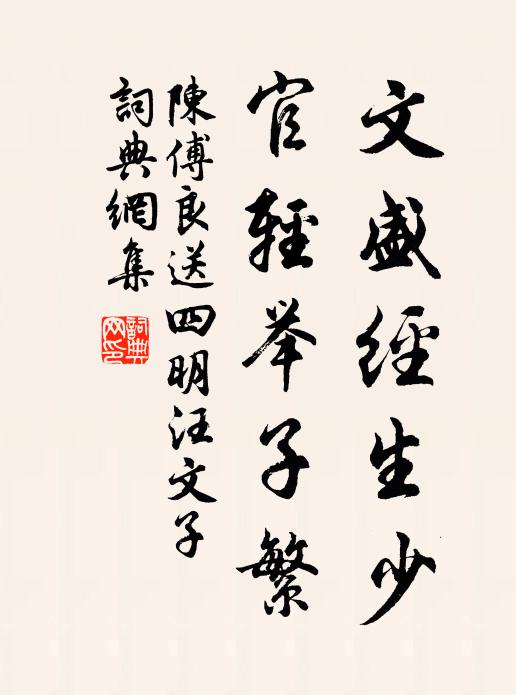 文盛經生少
官輕举子繁
陳傅良送四明汪文子
詞典網集
詞典网印